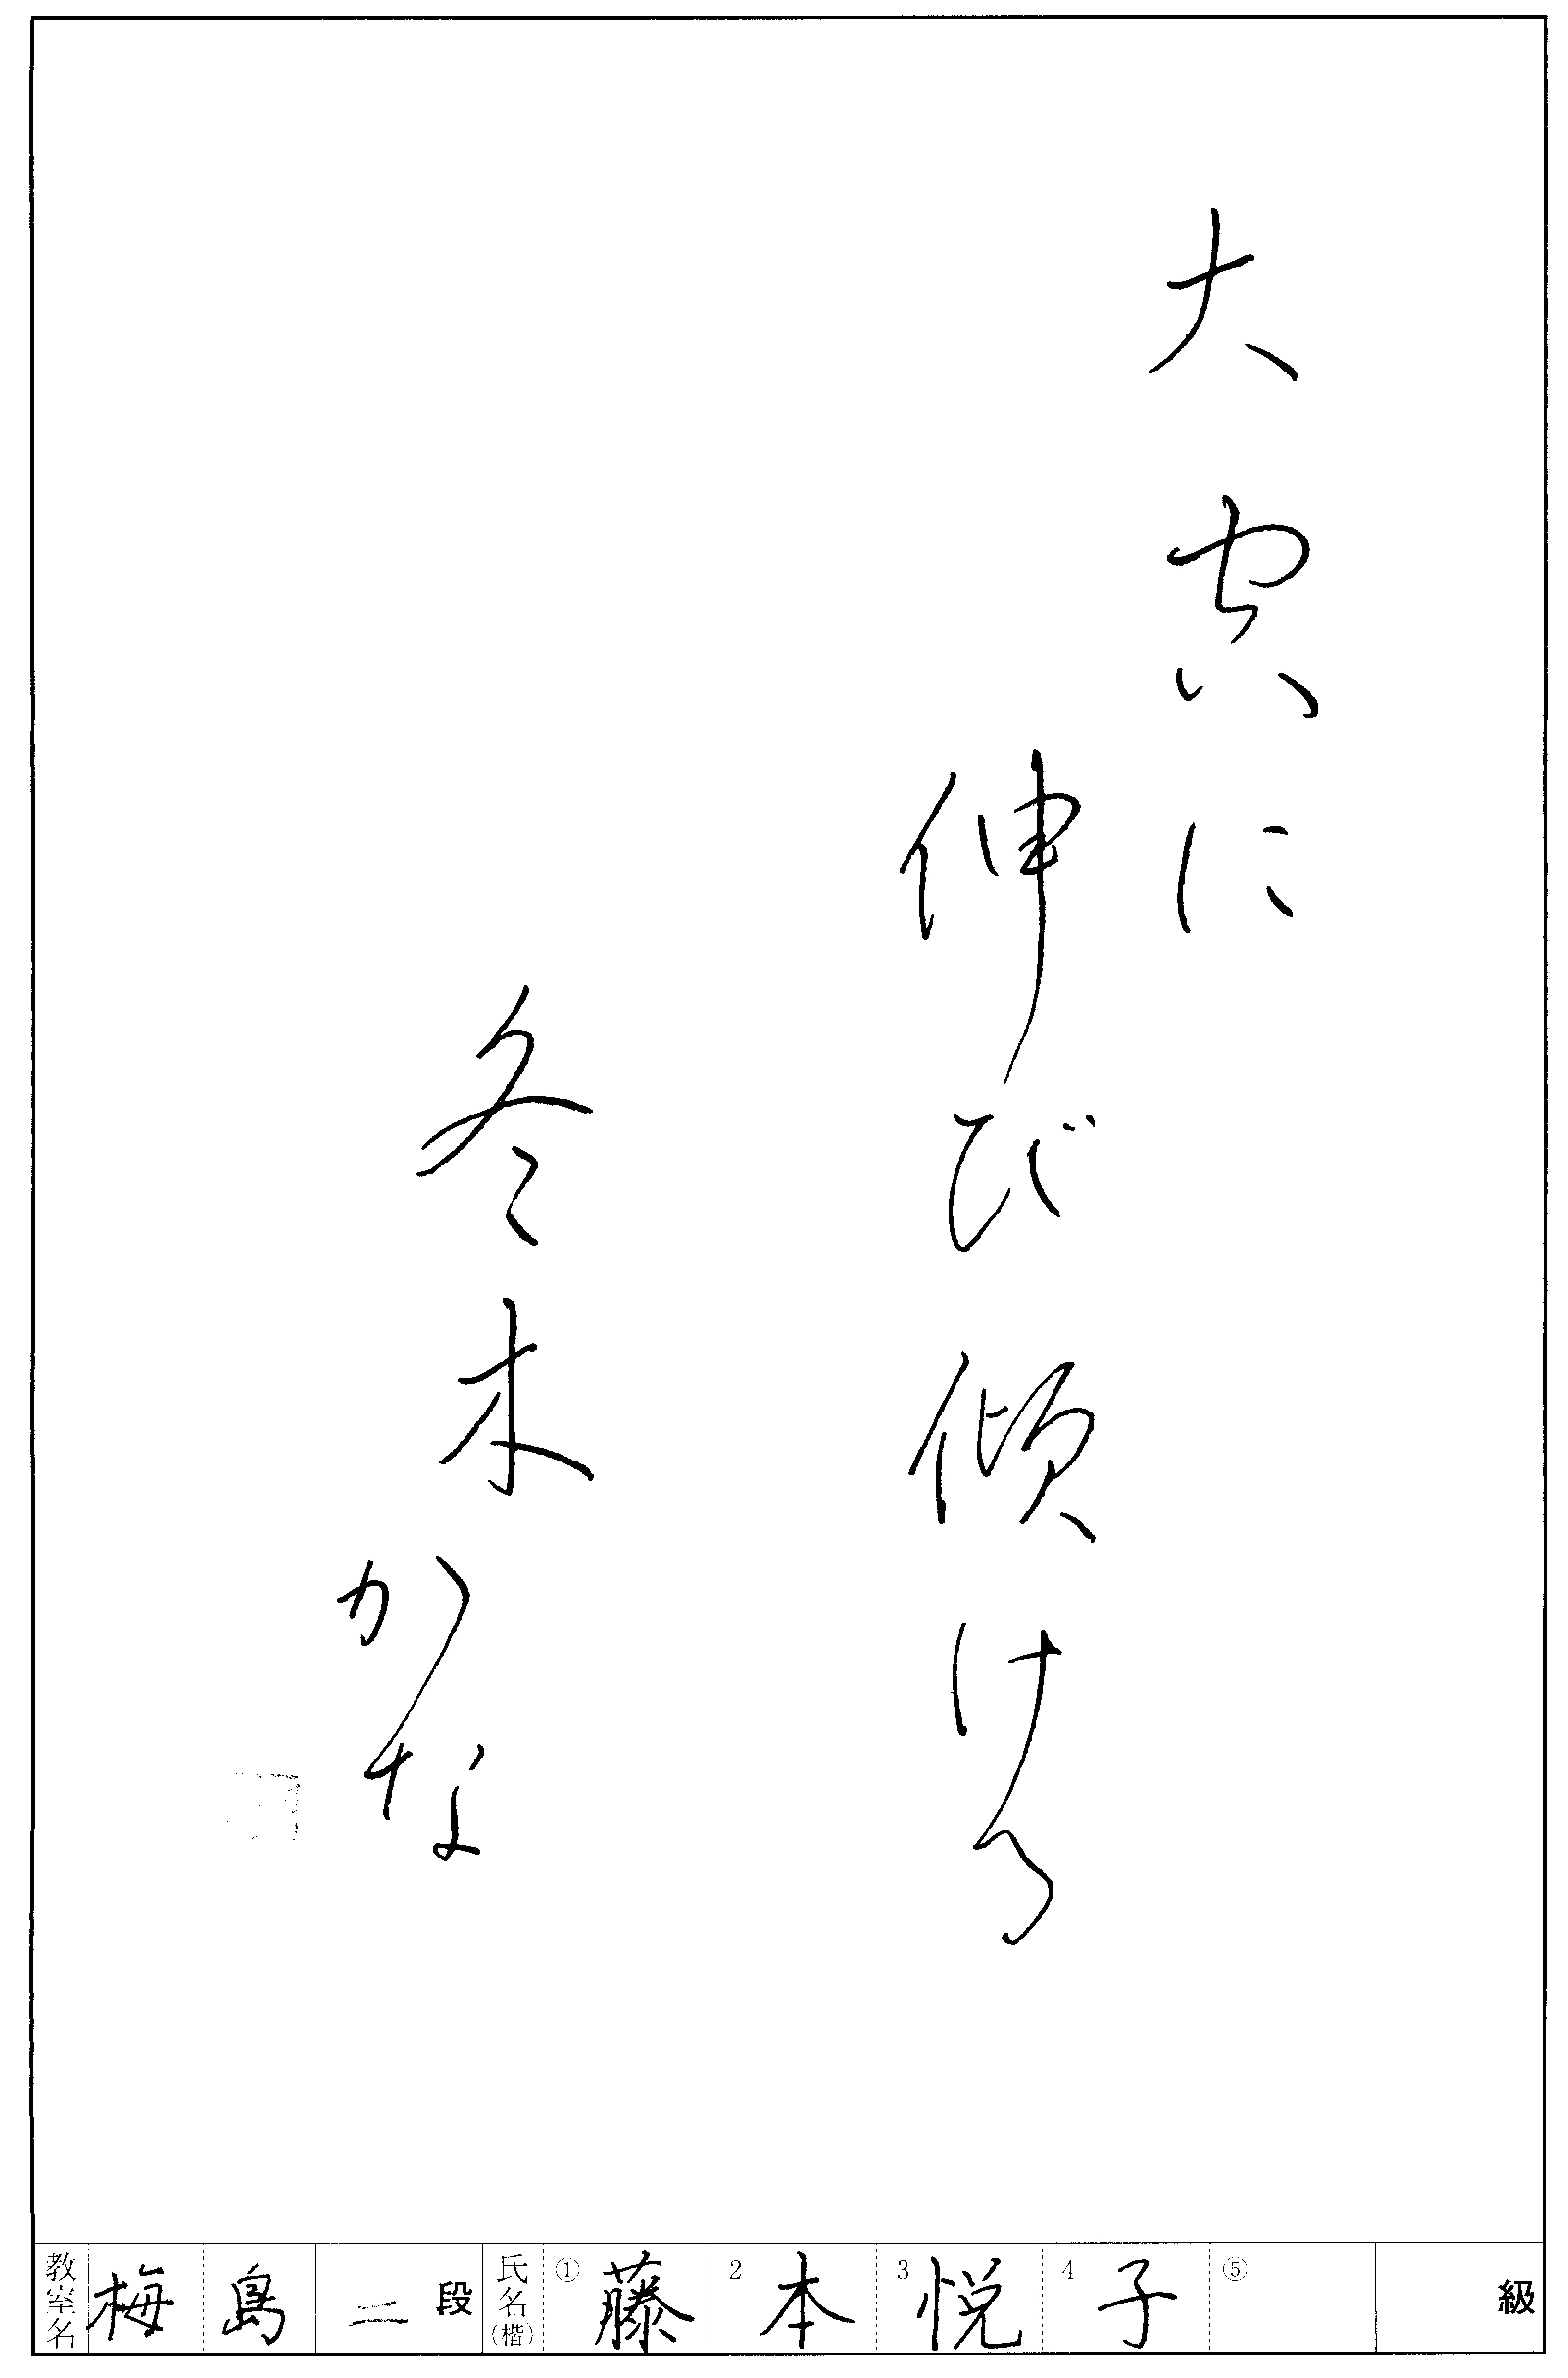 大空に
伸び傾ける
冬木かな
教室名 梅島 二段 氏名(楷) ①藤 2本 3悦 4子 ⑤ 級